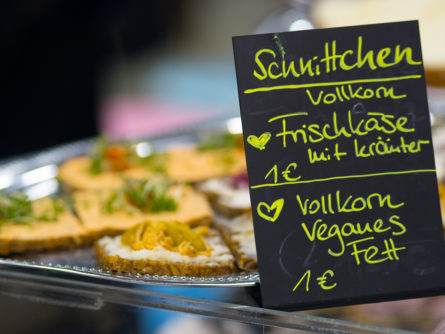 Schnittchen
Vollkorn
Frischkäse
mit kräuter
1€
Vollkorn
Veganes
Fett
1€